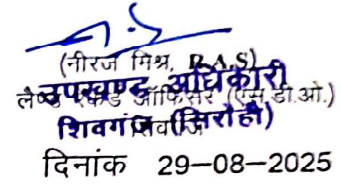 (नीरज मिश्र, R.A.S)
उपखण्ड अधिकारी
लैण्ड रेकर्ड ऑफिसर (एस.डी.ओ.)
शिवगंज (सिरोही)
शिवगंज
दिनांक 29-08-2025